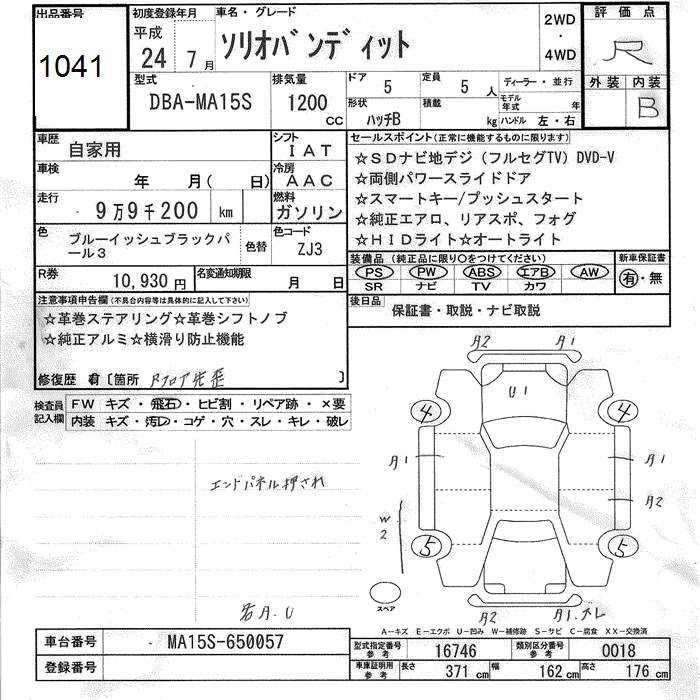 出品番号
1041
初度登録年月
平成
24年 7月
車名・グレード
ソリオバンディット
2WD
・
4WD
評価点
R
外装 内装
B
型式
DBA-MA15S
排気量
1200
CC
ドア
5
定員
5人
形状
ハッチB
積載
kg
ディーラー・並行
モデル年式 年
ハンドル 左・右
車歴
自家用
シフト
IAT
車検
年 月( 日)
冷房
AAC
走行
9万9千200 km
燃料
ガソリン
色
ブルーイッシュブラックパール3
色替
色コード
ZJ3
R券
10,930円
名変通知期限
月 日
セールスポイント(正常に機能するものに限ります)
☆SDナビ地デジ(フルセグTV) DVD-V
☆両側パワースライドドア
☆スマートキー/プッシュスタート
☆純正エアロ、リアスポ、フォグ
☆HIDライト☆オートライト
装備品(純正品に限り○をつけてください)
新車保証書
PS PW ABS エアB AW
SR ナビ TV カワ
有・無
後日品
保証書・取説・ナビ取説
注意事項申告欄(不具合内容等は具体的に記入して下さい)
☆革巻ステアリング☆革巻シフトノブ
☆純正アルミ☆横滑り防止機能
修復歴 有 〔箇所 Rフロア先歪 〕
検査員記入欄
FW キズ・飛石・ヒビ割・リペア跡・×要
内装 キズ・汚レ・コゲ・穴・スレ・キレ・破レ
エンドパネル押され
若A.U
A2 A1
U1
4 4
A1 A1
A2
W2
5 5
スペア
A2 A1.ズレ
A-キズ E-エクボ U-凹み W-補修跡 S-サビ C-腐食 XX-交換済
車台番号
MA15S-650057
登録番号
型式指定番号
参考
16746
類別区分番号
参考
0018
車庫証明用
参考
長さ 371cm 幅 162cm 高さ 176cm